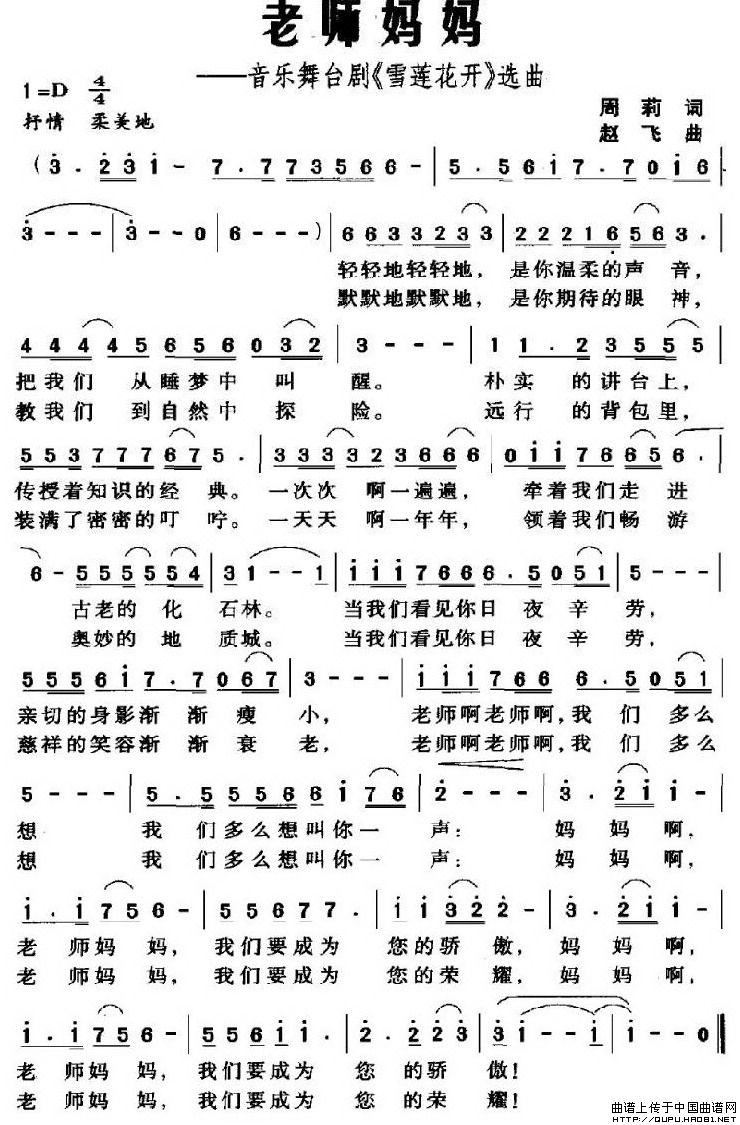 老师妈妈
——音乐舞台剧《雪莲花开》选曲
1=D 4/4
抒情 柔美地
周莉 词
赵飞 曲
(3·231- 7·773566- | 5·5617·7016 |
3--- | 3--0 | 6---) | 66333233 | 22216563· |
轻轻地轻轻地，是你温柔的声音，
默默地默默地，是你期待的眼神，
44445656032 | 3--- | 11·23555 |
把我们 从睡梦中 叫 醒。 朴实 的讲台上，
教我们 到自然中 探 险。 远行 的背包里，
553777675· | 333323666 | 0117665 6· |
传授着知识的经典。一次次 啊一遍遍， 牵着我们走进
装满了密密的叮咛。一天天 啊一年年， 领着我们畅游
6-5555554 | 31--1 | 1117666·5051 | 5--- |
古老的 化 石林。 当我们看见你日 夜辛劳，
奥妙的 地 质城。 当我们看见你日 夜辛劳，
555617·7067 | 3--- | 111766 6·5051 |
亲切的身影渐 渐 瘦 小， 老师啊老师啊，我 们 多么
慈祥的笑容渐 渐 衰 老， 老师啊老师啊，我 们 多么
5--- | 5·55566176 | 2--- | 3·211- |
想 我 们多么想叫你一 声： 妈 妈啊，
想 我 们多么想叫你一 声： 妈 妈啊，
1·1756- | 55677· | 11322- | 3·211- |
老 师妈 妈， 我们要成为 您的骄 傲， 妈 妈 啊，
老 师妈 妈， 我们要成为 您的荣 耀， 妈 妈 啊，
1·1756- | 55611· | 2·223 | 31--1 | 1--0 ‖
老 师妈 妈， 我们要成为 您 的骄 傲！
老 师妈 妈， 我们要成为 您 的荣 耀！
曲谱上传于中国曲谱网
HTTP://QUPU.HAO81.NET